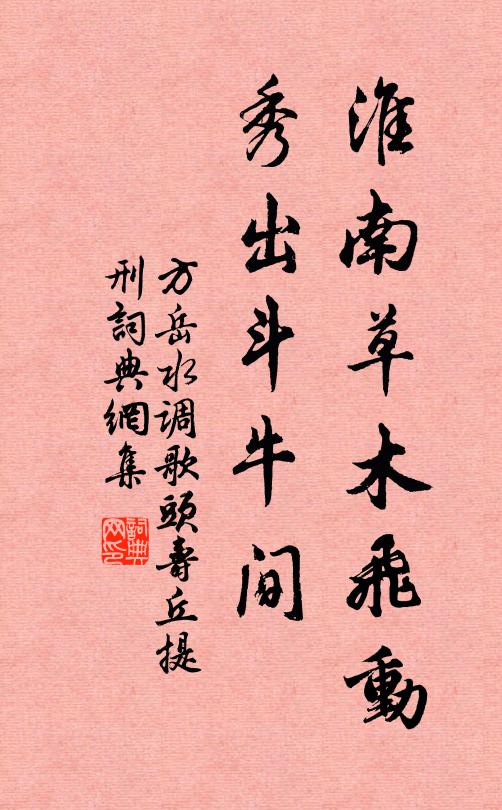 淮南草木飛動
秀出斗牛間
方岳水调歌頭壽丘提
刑詞典網集
詞典
网印